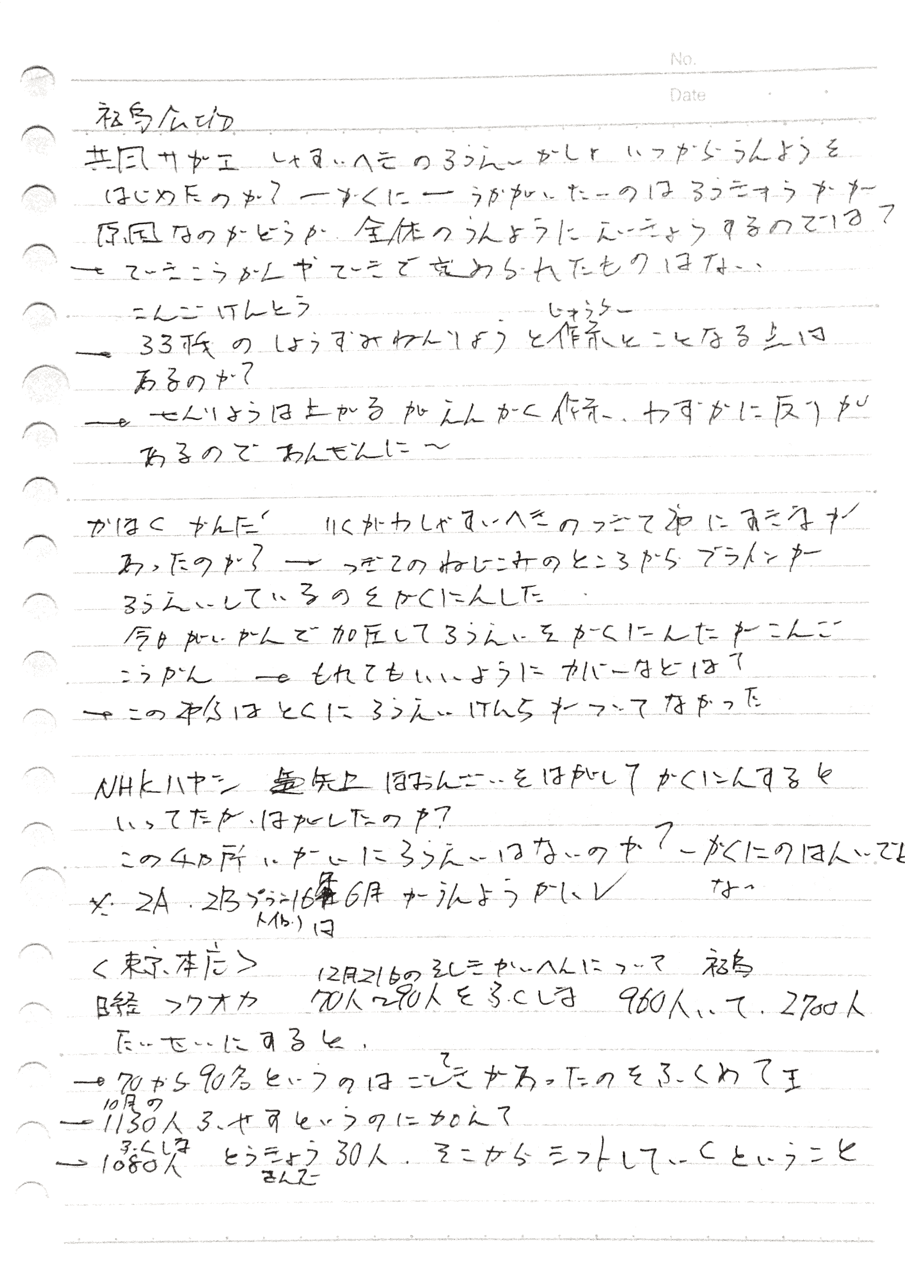 No.
Date
福島広エ
共同 サガエ しゃすいへきのろうえい かしょ いつからうんようを
はじめたのか? ー かくにー うかがいたーのは ろうきゅうかが
原因なのかどうか 全体のうんようにえいきょうするのでは?
→ ていきこうかんやていきで定められたものはない、
こんごけんとう
じゅうらい
→ 33体のしようずみねんりょうと作業とことなる点は
あるのか?
→ せんりょうは上がるが えんかく作業、わずかに反りが
あるので あんぜんに〜
かほく かんだ りくがわしゃすいへきのつぎて部にすきまが
あったのか? → つぎてのねじこみのところから ブラインが
ろうえいしているのをかくにんした
今日がいかんで加圧してろうえいをかくにんたが こんご
こうかん → もれてもいいように カバーなどは?
→ この部分はとくにろうえいけんちがついてなかった
NHKハヤシ 矢上 ほおんざいをはがして かくにんすると
いってたが、はがしたのか?
この4カ所いがいにろうえいはないのか? ーかくにのはんいでは
ない
※ 2A・2Bプラント 16年6月からうんようかいし
は
<東京本店> 12月21日のそしきかいへんについて 福島
日経 フクオカ 70人〜90人をふくしま 960人いて、2700人
たいせいにすると、
→ 70から90名というのは ごじきがあったのをふくめて
10月の
→ 1130人ふやすというのに加えて
ふくしま
→ 1080人 とうきょう 30人、そこからシフトしていくということ